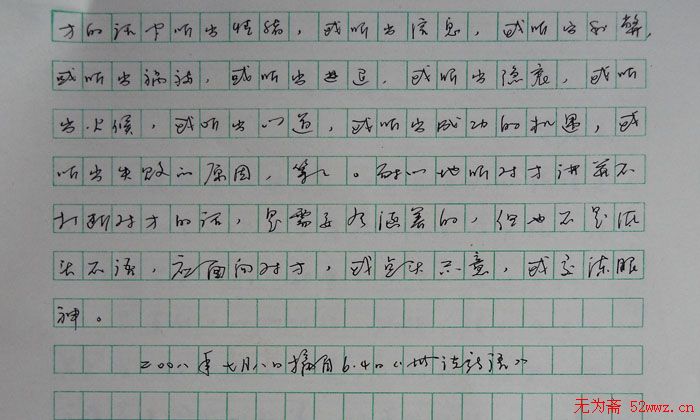 方的话中听出情绪，或听出信息，或听出和弊，
或听出祸诱，或听出进退，或听出隐衷，或听
出火候，或听出门道，或听出成功的机遇，或
听出失败的原因，等等。耐心地听对方讲并不
打断对方的话，是需要有涵养的，但也不是低
头不语，应面向对方，或点头示意，或交流眼
神。
二〇〇八年七月八日摘自《世说新语》
无为斋 52wwz.cn